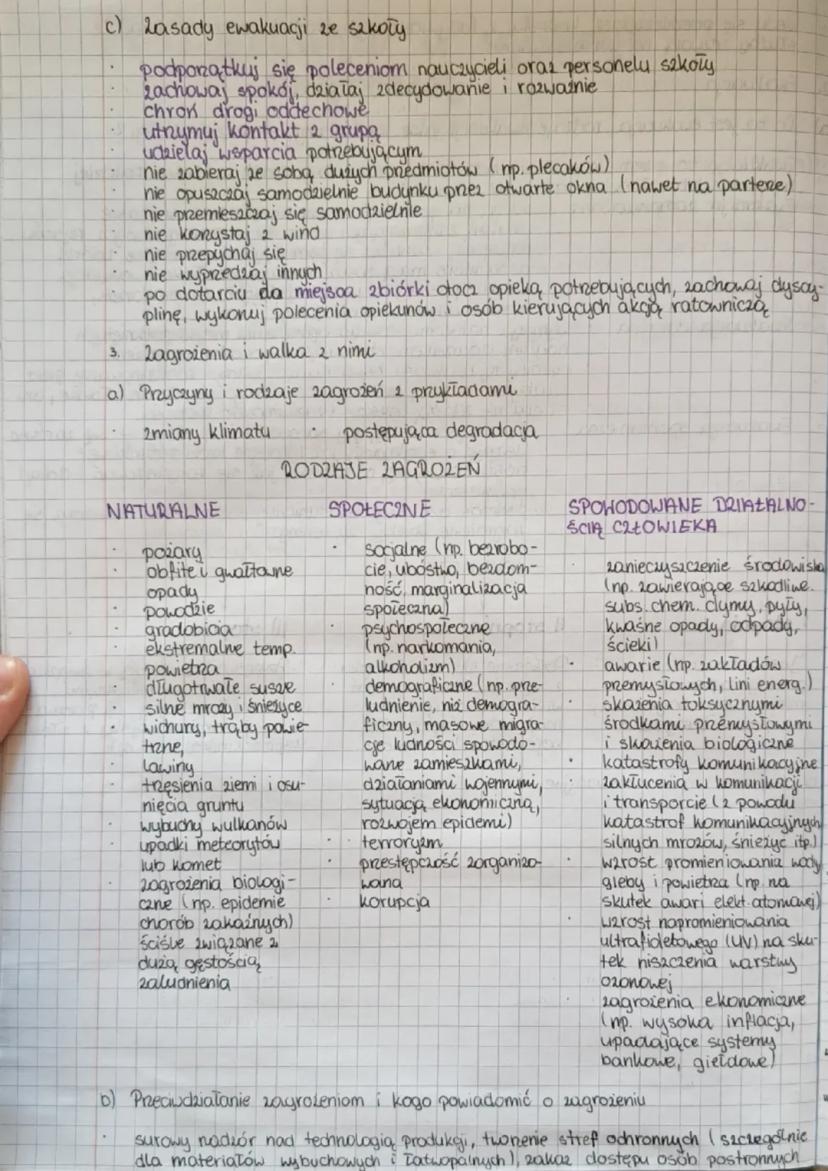 c) Zasady ewakuacji ze szkoły
· podporządkuj się poleceniom nauczycieli oraz personelu szkoły
· zachowaj spokój, działaj zdecydowanie i rozważnie
· chroń drogi oddechowe
· utrzymuj kontakt z grupą
· udzielaj wsparcia potrzebującym
· nie zabieraj ze sobą dużych przedmiotów (np. plecaków)
· nie opuszczaj samodzielnie budynku przez otwarte okna (nawet na parterze)
· nie przemieszczaj się samodzielnie
· nie korzystaj z wind
· nie przepychaj się
· nie wyprzedzaj innych
· po dotarciu do miejsca zbiórki otocz opieką potrzebujących, zachowaj dyscy-
plinę, wykonuj polecenia opiekunów i osób kierujących akcją ratowniczą
3. Zagrożenia i walka z nimi
a) Przyczyny i rodzaje zagrożeń z przykładami
· zmiany klimatu · postępująca degradacja
RODZAJE ZAGROŻEŃ
NATURALNE
· pożary
· obfite i gwałtowne
opady
· powodzie
· gradobicia
· ekstremalne temp.
powietrza
· długotrwałe susze
· silne mrozy i śnieżyce
· wichury, trąby powie-
trzne,
· lawiny
· trzęsienia ziemi i osu-
nięcia gruntu
· wybuchy wulkanów
· upadki meteorytów
lub komet
· zagrożenia biologi-
czne (np. epidemie
chorób zakaźnych)
ściśle związane z
dużą gęstością
zaludnienia
SPOŁECZNE
· socjalne (np. bezrobo-
cie, ubóstwo, bezdom-
ność, marginalizacja
społeczna)
· psychospołeczne
(np. narkomania,
alkoholizm)
· demograficzne (np. prze-
ludnienie, niż demogra-
ficzny, masowe migra-
cje ludności spowodo-
wane zamieszkami,
działaniami wojennymi,
sytuacją ekonomiczną,
rozwojem epidemi)
· terroryzm
· przestępczość zorganizo-
wana
· korupcja
SPOWODOWANE DZIAŁALNO-
ŚCIĄ CZŁOWIEKA
· zanieczyszczenie środowiska
(np. zawierające szkodliwe
subs. chem. dymy, pyły,
kwaśne opady, odpady,
ścieki)
· awarie (np. zakładów
przemysłowych, lini energ.)
· skażenia toksycznymi
środkami przemysłowymi
i skażenia biologiczne
· katastrofy komunikacyjne
· zakłucenia w komunikacji
i transporcie (z powodu
katastrof komunikacyjnych
silnych mrozów, śnieżyc itp.)
· wzrost promieniowania wody
gleby i powietrza (np. na
skutek awari elekt. atomowej)
· wzrost napromieniowania
ultrafioletowego (UV) na sku-
tek niszczenia warstwy
ozonowej
· zagrożenia ekonomiczne
(np. wysoka inflacja,
upadające systemy
bankowe, giełdowe)
b) Przeciwdziałanie zagrożeniom i kogo powiadomić o zagrożeniu
· surowy nadzór nad technologią produkcji, tworzenie stref ochronnych (szczególnie
dla materiałów wybuchowych i łatwopalnych), zakaz dostępu osób postronnych